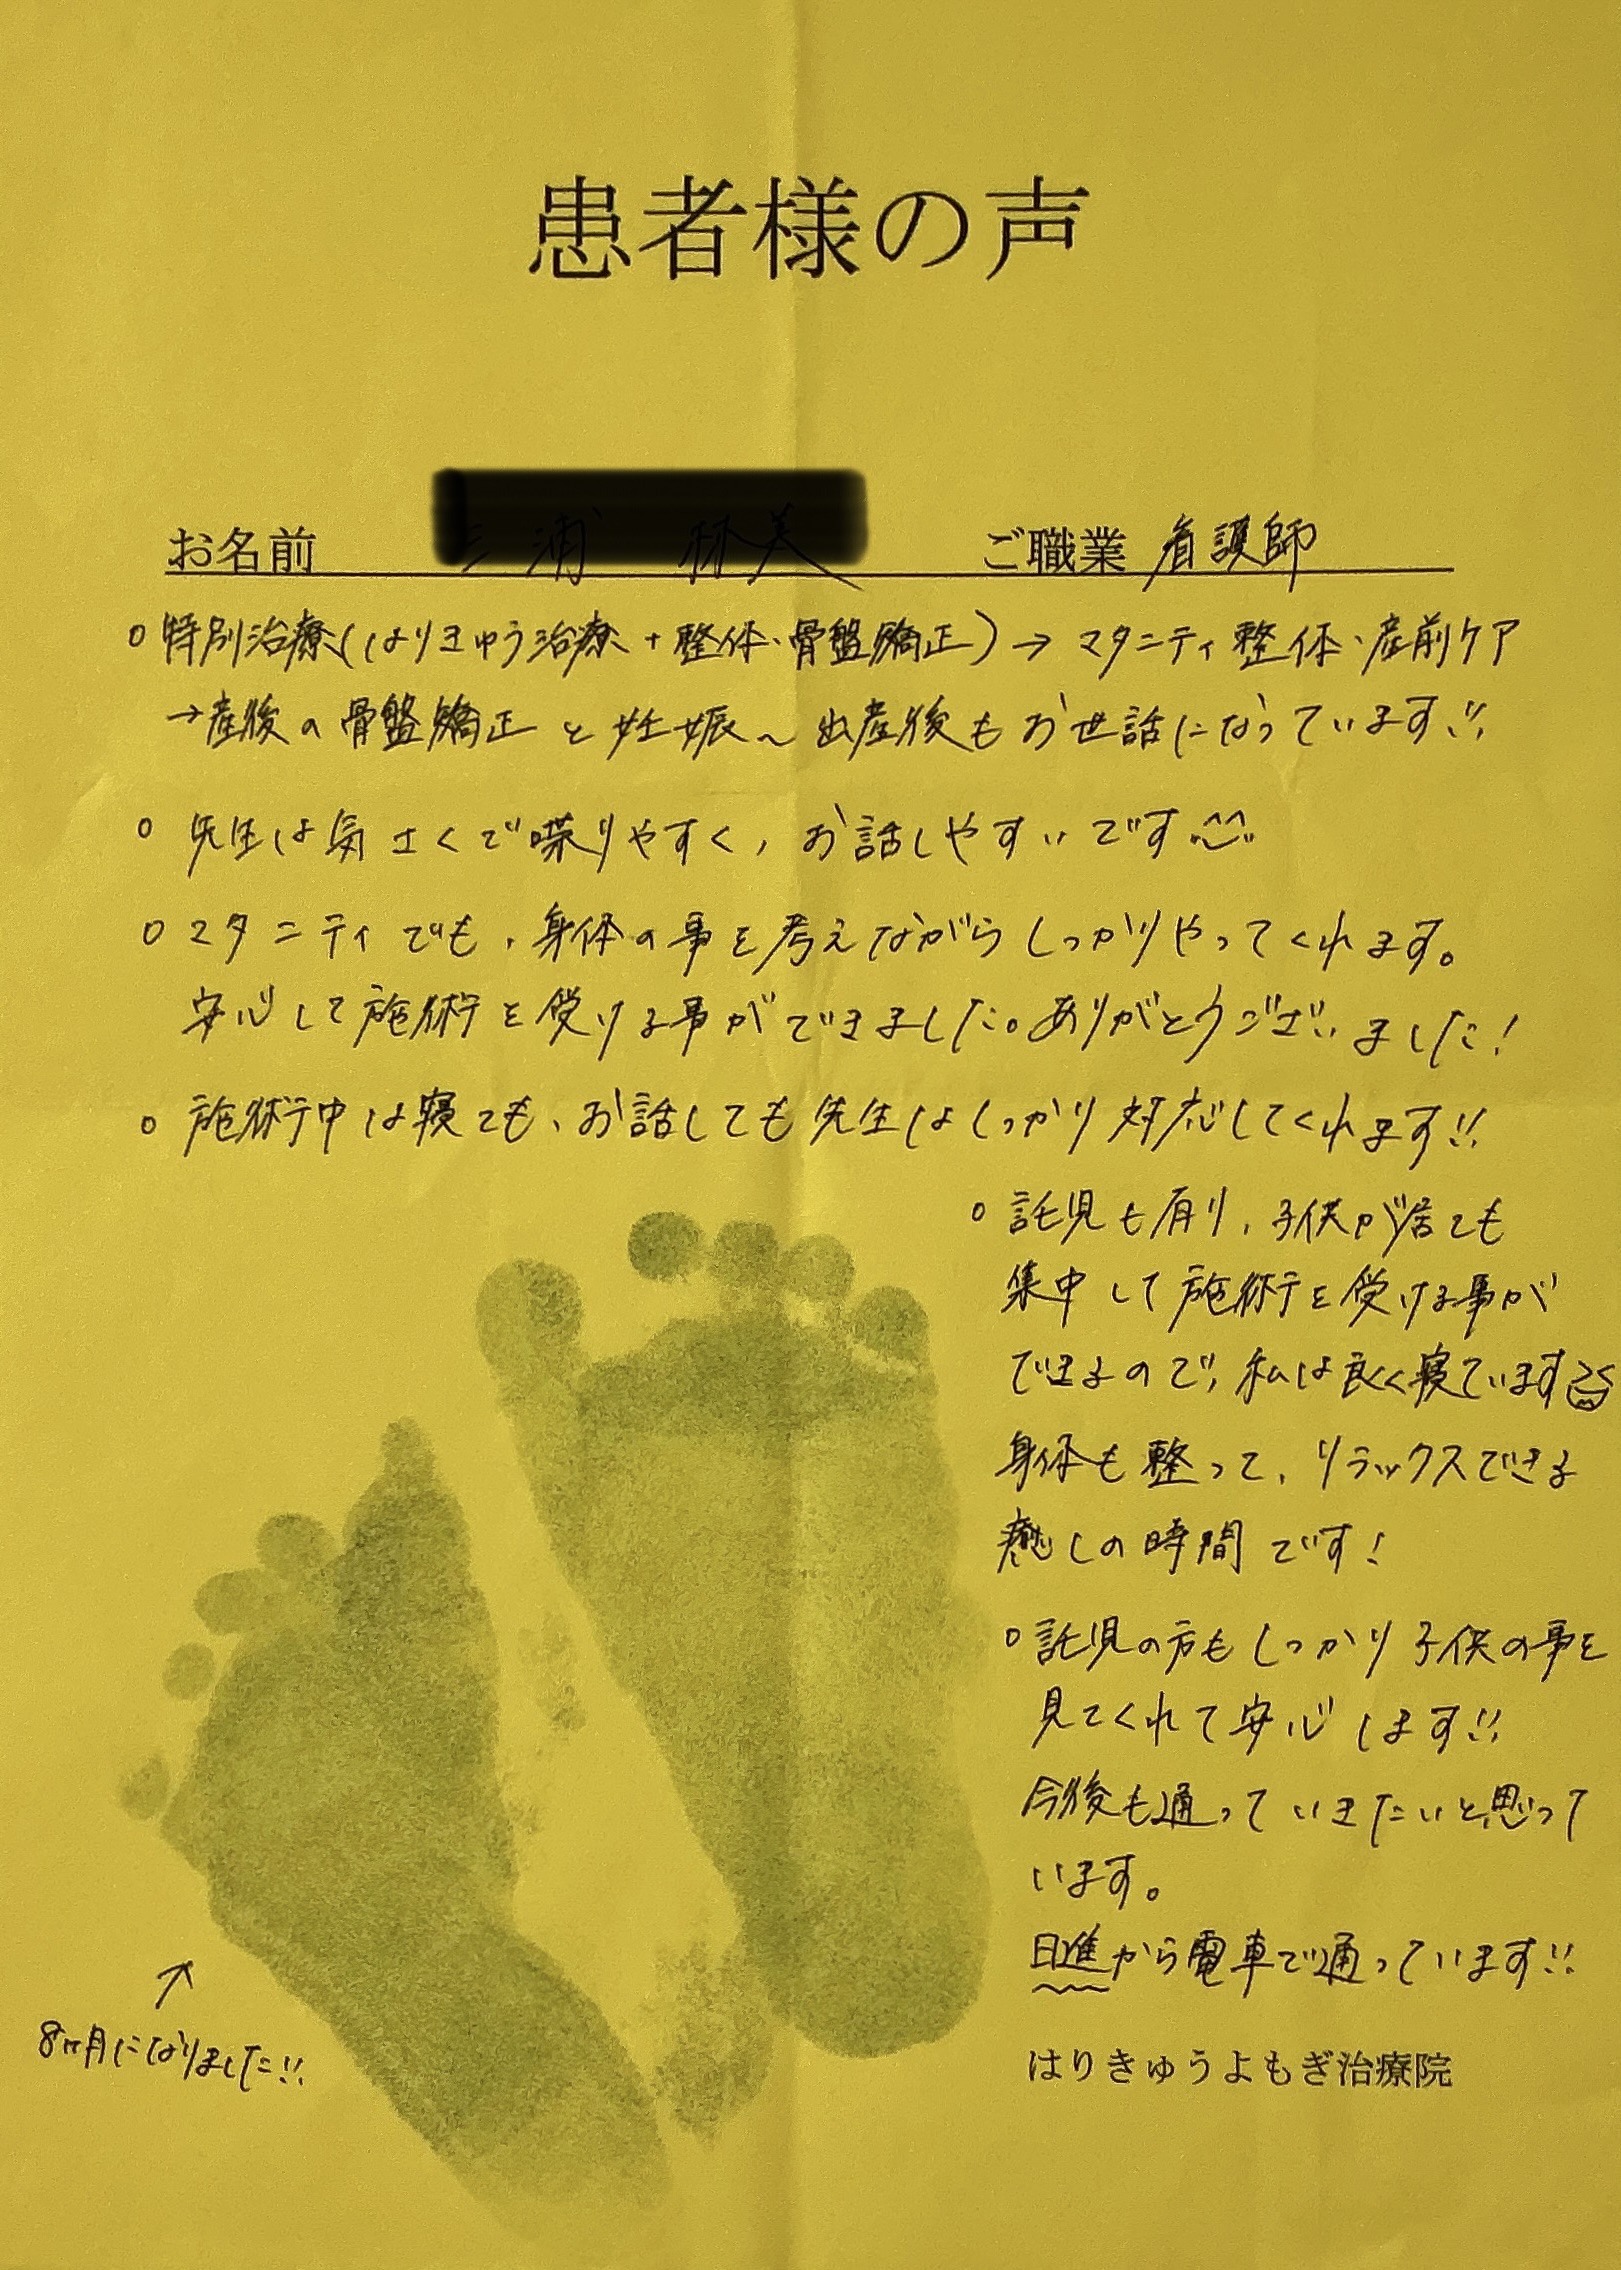 患者様の声
お名前 ご職業 看護師
○ 特別治療(はりきゅう治療+整体・骨盤矯正)→マタニティ整体・産前ケア
→産後の骨盤矯正と妊娠~出産後もお世話になっています!!
○ 先生は気さくで喋りやすく、お話しやすいです
○ マタニティでも、身体の事を考えながらしっかりやってくれます。
安心して施術を受ける事ができました。ありがとうございました!
○ 施術中は寝ても、お話しても先生はしっかり対応してくれます!!
○ 託児も有り、子供が居ても
集中して施術を受ける事が
できるので、私は良く寝ています
身体も整って、リラックスできる
癒しの時間です!
○ 託児の方もしっかり子供の事を
見てくれて安心します!!
今後も通っていきたいと思って
います。
日進から電車で通っています!!
8ヶ月になりました!!
はりきゅうよもぎ治療院